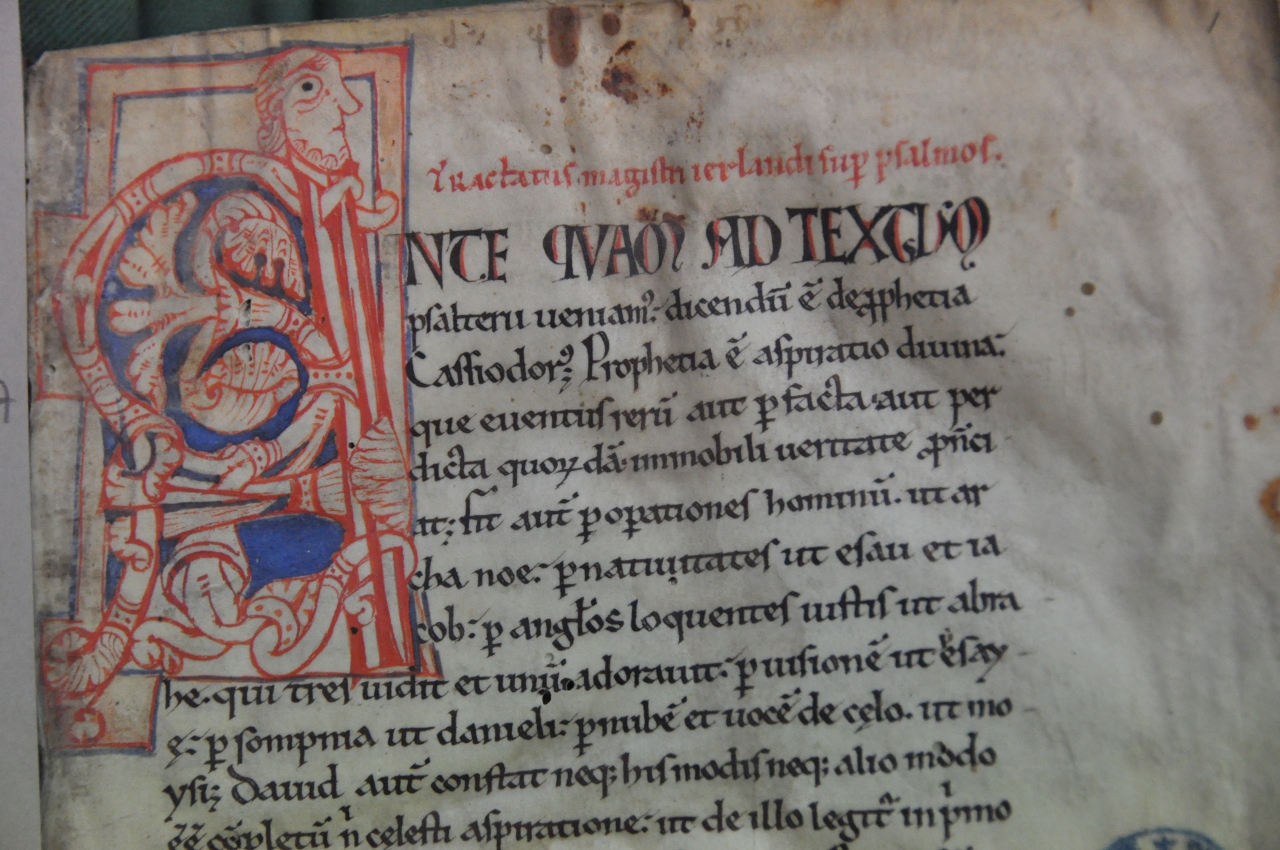 Tractatus magistri ierlandi sup̱ psalmos.
ANTE QVAM AD TEXTUM
psalterii ueniam᷒: dicendū ē de ꝓphetia
Cassiodorꝰ; Prophetia ē aspiratio diuina.
que euentus rerū aut ꝑ facta. aut per
dicta quoꝝdā. immobili ueritate ꝓnūci
at; fit aut̄ ꝑ oꝑationes hominū. ut ar
cha noe. ꝑ natiuitates ut esau et ia
cob: ꝑ angłos loquentes iustis ut abra
he. qui tres uidit et unū adorauit: ꝑ uisionē ut esay
ę: ꝑ sompnia ut danieli: ꝑ nubē et uocē de cęlo. ut mo
ysi; Dauid aut̄ constat neq; his modis neq; alio modo
ēē cōpletū n̍ cęlesti aspiratione: ut de illo legit᷑ in p̍mo